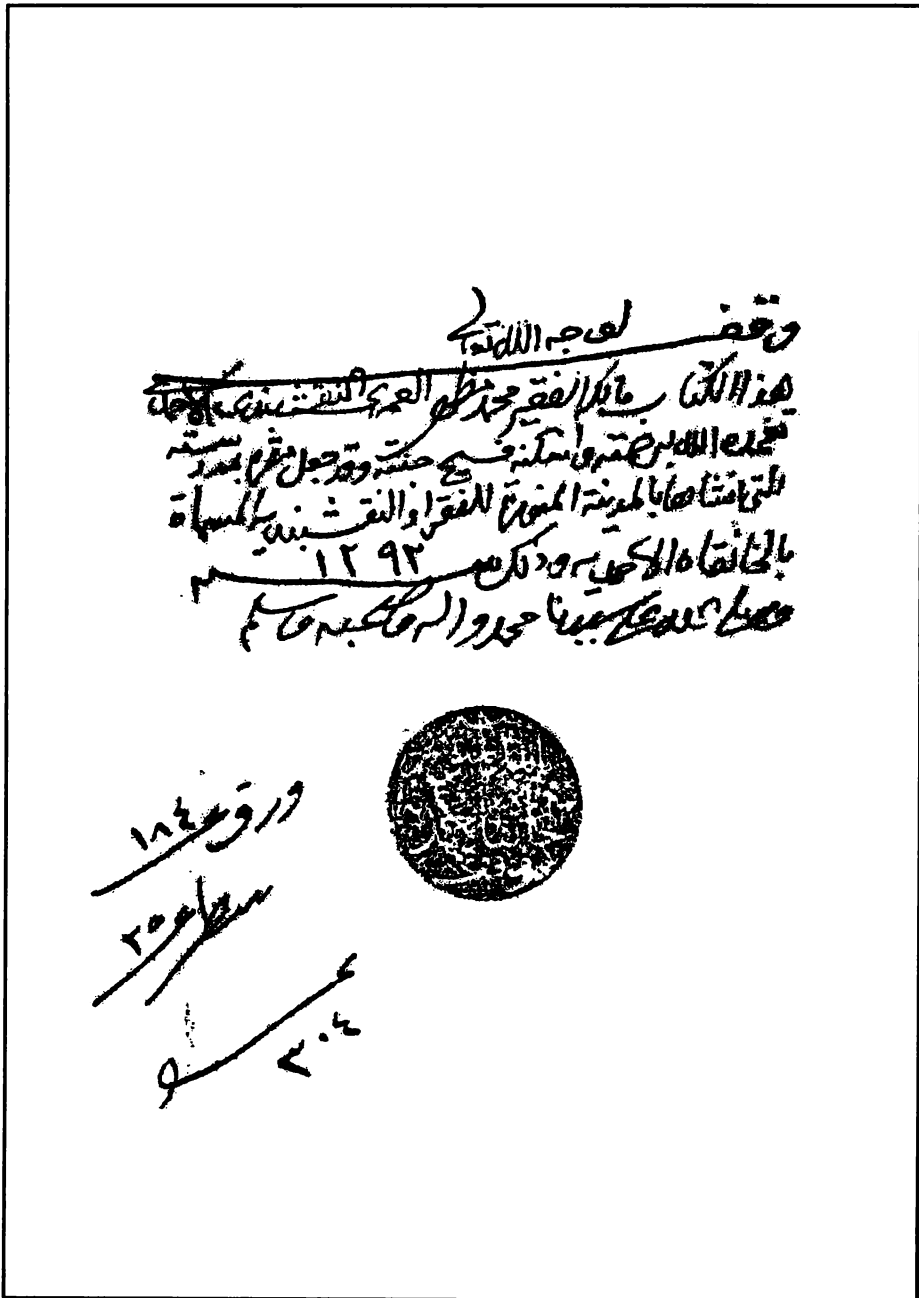 وقف لوجه الله تعالى
هذا الكتاب مالكه الفقير محمد مظهر العمري النقشبندي الأحمدي
تغمده الله برحمته واسكنه فسيح جنته وقد جعل مقره بمدرسته
التي انشاها بالمدينة المنورة للفقراء النقشبنديه المسماة
بالخانقاه الاحمديه وذلك سنه ١٢٩٢
وصلى الله على سيدنا محمد واله وصحبه وسلم
ورق ١٨٤
سطر ٢٥
٣٠٤